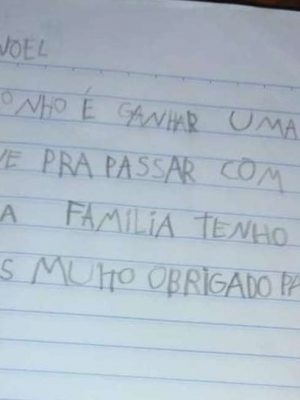 NOEL
ONHO É GANHAR UMA
VE PRA PASSAR COM
A FAMILIA TENHO
S MUITO OBRIGADO PA